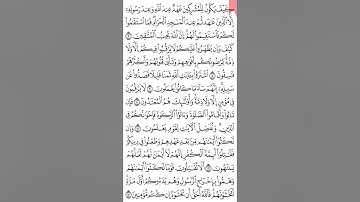 كَيْفَ يَكُونُ لِلْمُشْرِكِينَ عَهْدٌ عِندَ ٱللَّهِ وَعِندَ رَسُولِهِۦٓ
إِلَّا ٱلَّذِينَ عَٰهَدتُّمْ عِندَ ٱلْمَسْجِدِ ٱلْحَرَامِ فَمَا ٱسْتَقَٰمُوا۟
لَكُمْ فَٱسْتَقِيمُوا۟ لَهُمْ إِنَّ ٱللَّهَ يُحِبُّ ٱلْمُتَّقِينَ ۝٧
كَيْفَ وَإِن يَظْهَرُوا۟ عَلَيْكُمْ لَا يَرْقُبُوا۟ فِيكُمْ إِلًّا
وَلَا ذِمَّةً يُرْضُونَكُم بِأَفْوَٰهِهِمْ وَتَأْبَىٰ قُلُوبُهُمْ وَأَكْثَرُهُمْ
فَٰسِقُونَ ۝٨ ٱشْتَرَوْا۟ بِـَٔايَٰتِ ٱللَّهِ ثَمَنًا قَلِيلًا فَصَدُّوا۟ عَن
سَبِيلِهِۦٓ إِنَّهُمْ سَآءَ مَا كَانُوا۟ يَعْمَلُونَ ۝٩ لَا يَرْقُبُونَ
فِى مُؤْمِنٍ إِلًّا وَلَا ذِمَّةً وَأُو۟لَٰٓئِكَ هُمُ ٱلْمُعْتَدُونَ ۝١٠
فَإِن تَابُوا۟ وَأَقَامُوا۟ ٱلصَّلَوٰةَ وَءَاتَوُا۟ ٱلزَّكَوٰةَ فَإِخْوَٰنُكُمْ فِى
ٱلدِّينِ وَنُفَصِّلُ ٱلْـَٔايَٰتِ لِقَوْمٍ يَعْلَمُونَ ۝١١ وَإِن
نَّكَثُوٓا۟ أَيْمَٰنَهُم مِّنۢ بَعْدِ عَهْدِهِمْ وَطَعَنُوا۟ فِى دِينِكُمْ
فَقَٰتِلُوٓا۟ أَئِمَّةَ ٱلْكُفْرِ إِنَّهُمْ لَآ أَيْمَٰنَ لَهُمْ لَعَلَّهُمْ
يَنتَهُونَ ۝١٢ أَلَا تُقَٰتِلُونَ قَوْمًا نَّكَثُوٓا۟ أَيْمَٰنَهُمْ
وَهَمُّوا۟ بِإِخْرَاجِ ٱلرَّسُولِ وَهُم بَدَءُوكُمْ أَوَّلَ مَرَّةٍ
أَتَخْشَوْنَهُمْ فَٱللَّهُ أَحَقُّ أَن تَخْشَوْهُ إِن كُنتُم مُّؤْمِنِينَ ۝١٣